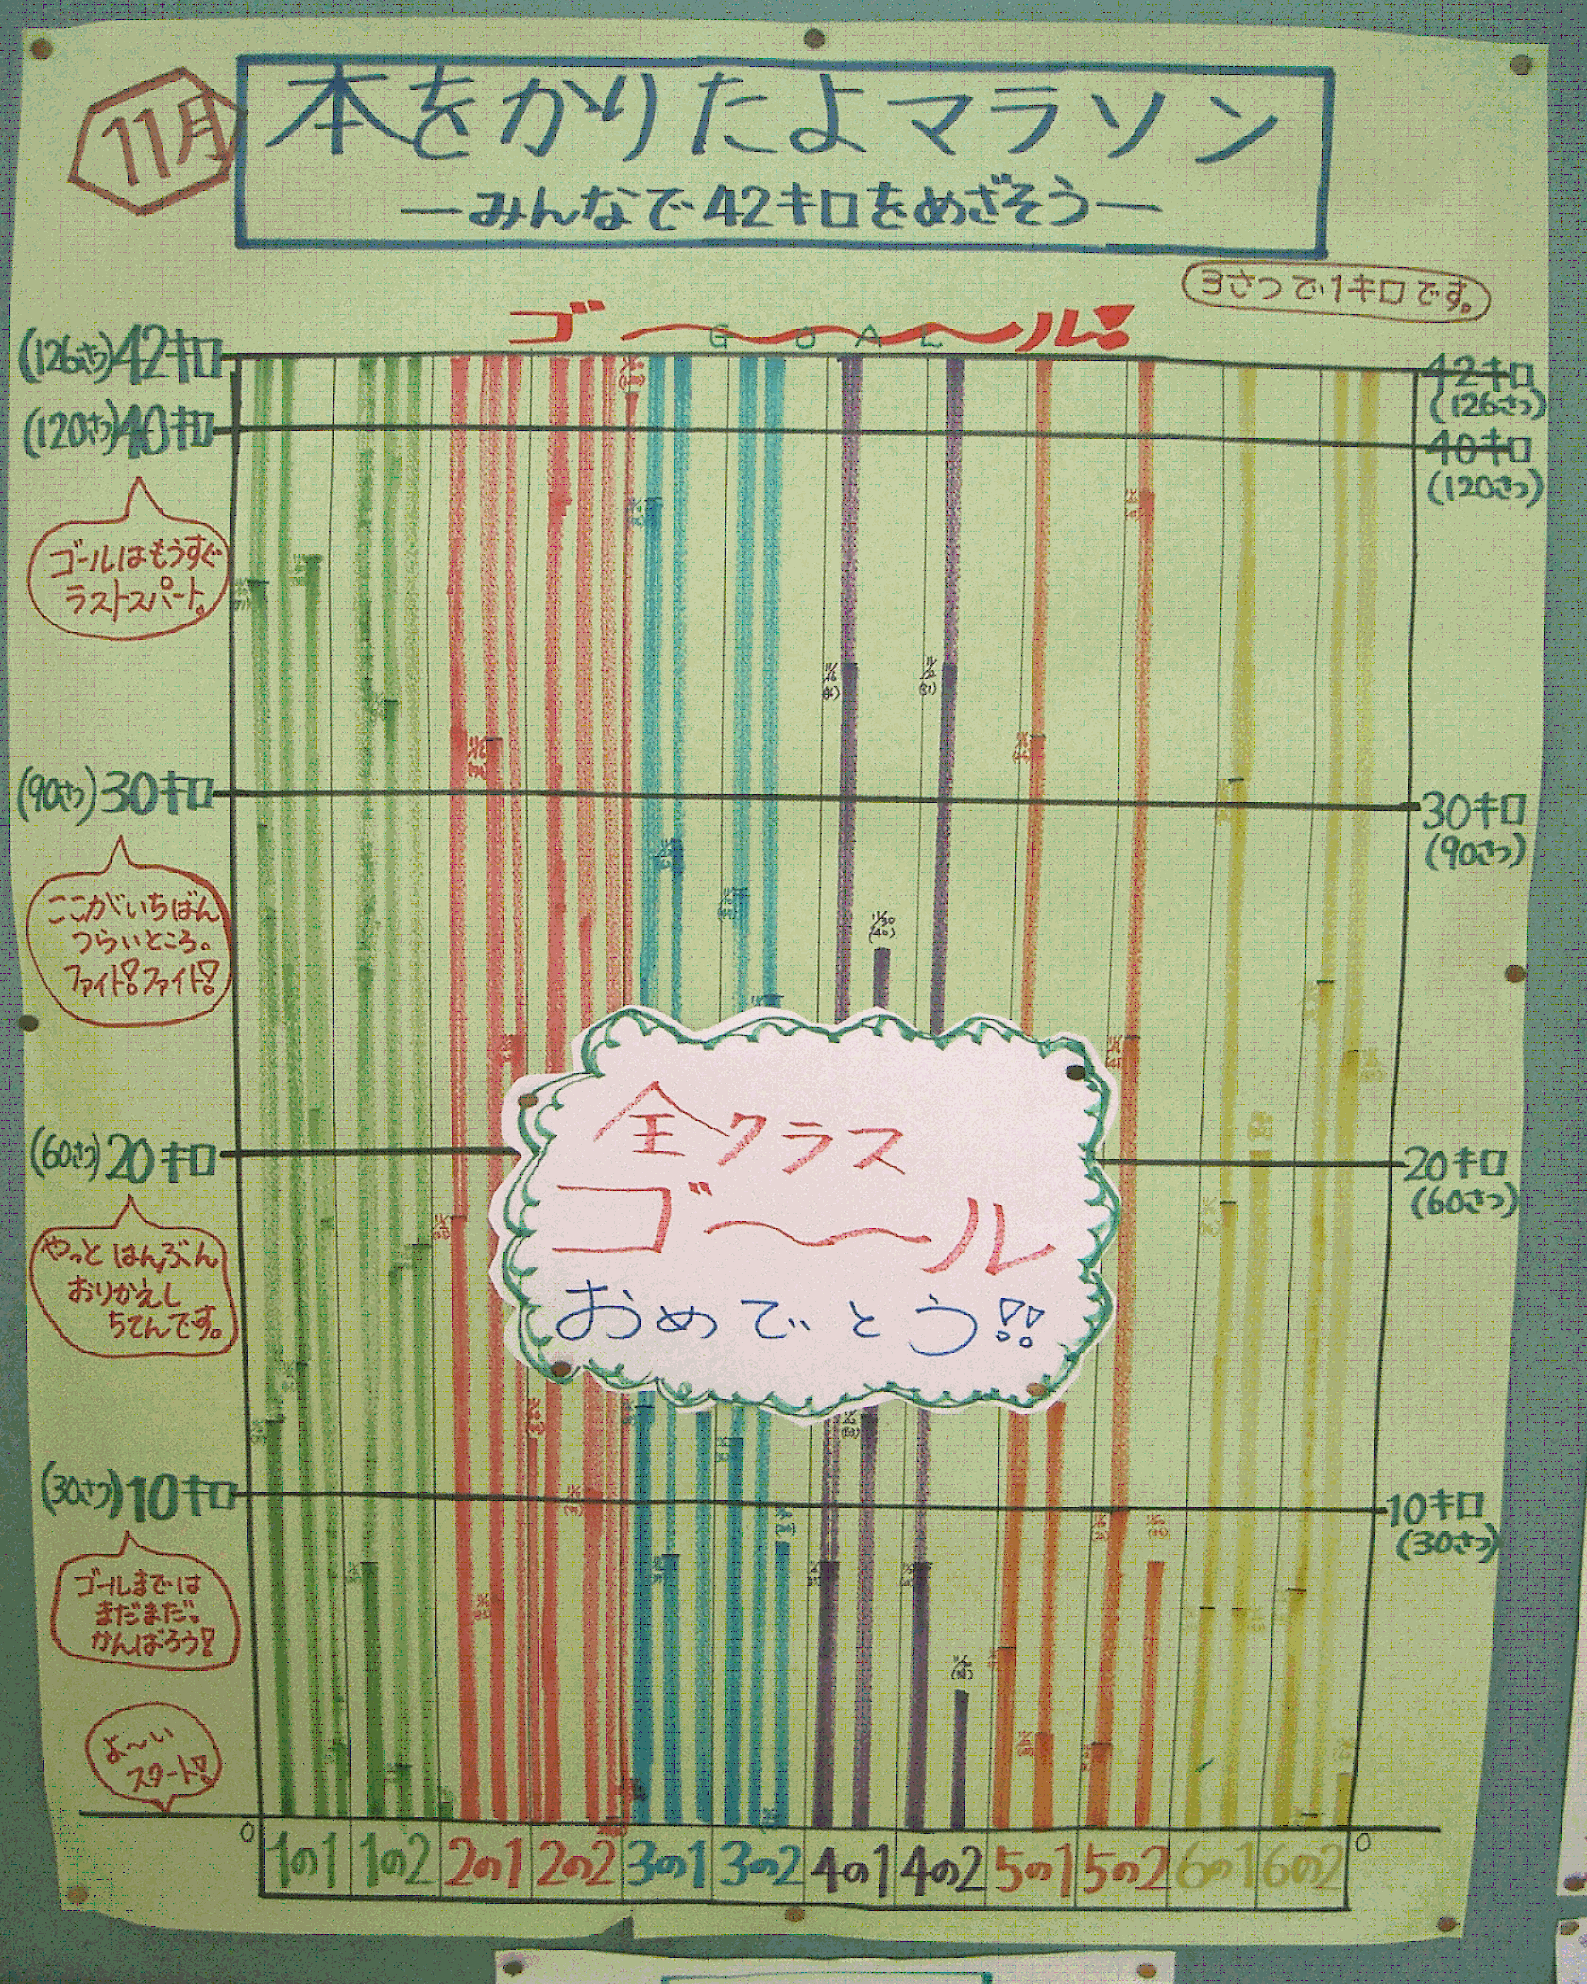 11月
本をかりたよマラソン
―みんなで42キロをめざそう―
3さつで1キロです。
ゴ〜〜〜ル!
GOAL
(126さつ)42キロ
42キロ
(126さつ)
(120さつ)40キロ
40キロ
(120さつ)
ゴールはもうすぐ
ラストスパート。
(90さつ)30キロ
30キロ
(90さつ)
ここがいちばん
つらいところ。
ファイト!ファイト!
11/30
(40)
(60さつ)20キロ
20キロ
(60さつ)
全クラス
ゴ〜〜ル
おめでとう!!
やっとはんぶん
おりかえし
ちてんです。
(30さつ)10キロ
10キロ
(30さつ)
ゴールまでは
まだまだ。
がんばろう!
よ〜い
スタート!
0
0
1の1 1の2 2の1 2の2 3の1 3の2 4の1 4の2 5の1 5の2 6の1 6の2